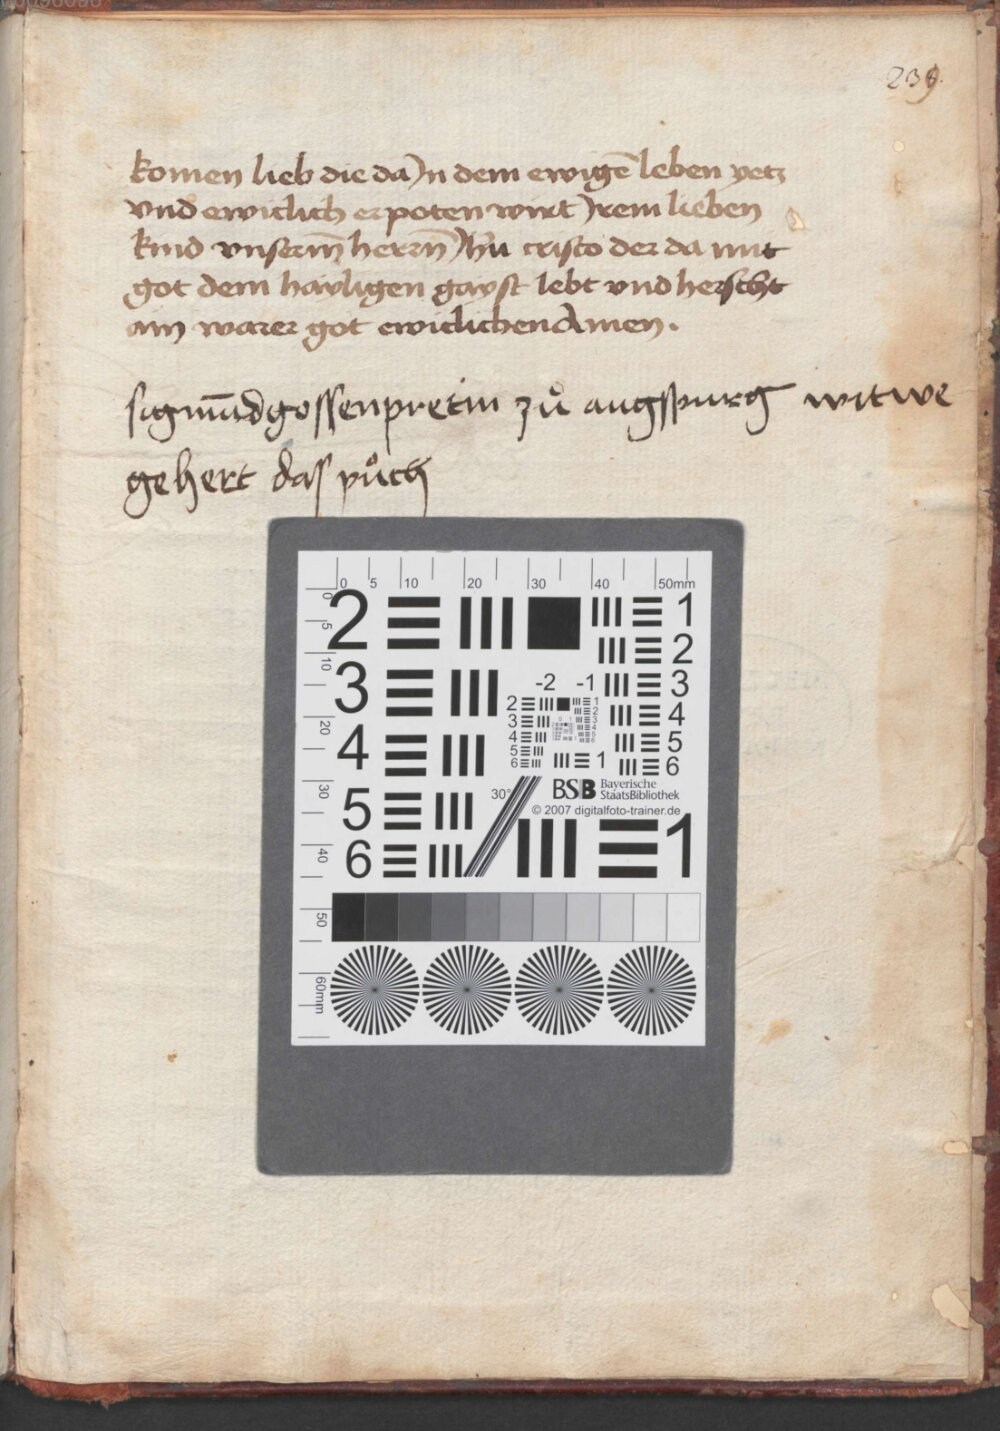 239
komen lieb die da Jn dem ewigē leben yetz
vnd ewiclich erpoten wirt Jrem lieben
kind vnserm̄ herrn̄ Jhū cristo der da mit
got dem hayligen gayst lebt vnd herscht
ain warer got ewiclichen Amen.
sigmūd gossenpretin zů augspurg witwe
gehert das půch
0 5 10 20 30 40 50mm
0 5 10 20 30 40 50 60mm
2 1
2
3 -2 -1 3
2 1
2
3 3
4 4
4 4
5 5
5
6 6
6 1
30°
BSB Bayerische
StaatsBibliothek
© 2007 digitalfoto-trainer.de
5
6 1